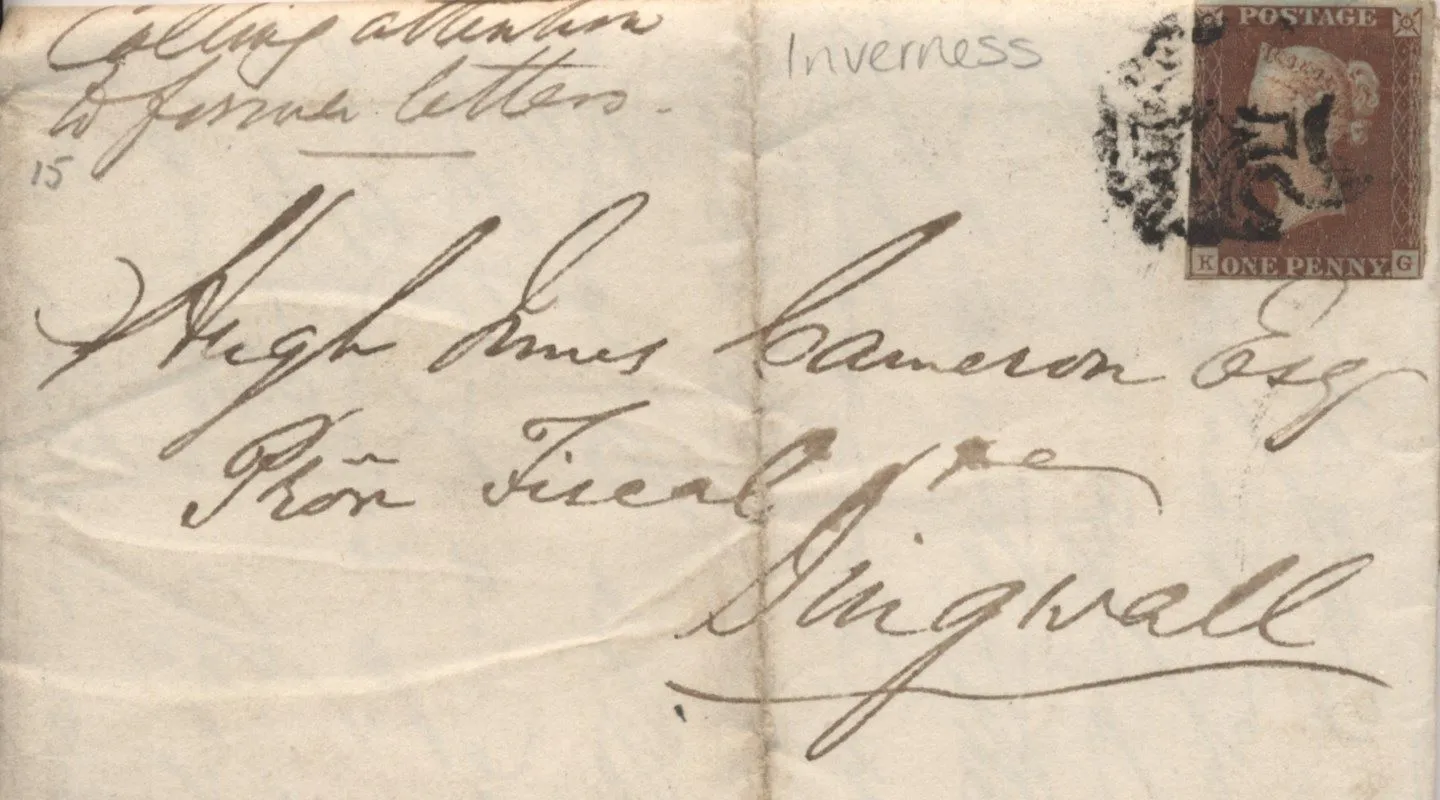 Calling attention
to former letters.
Inverness
15
POSTAGE
K ONE PENNY G
Hugh Innes Cameron Esq
Prõn Fiscal
Dingwall